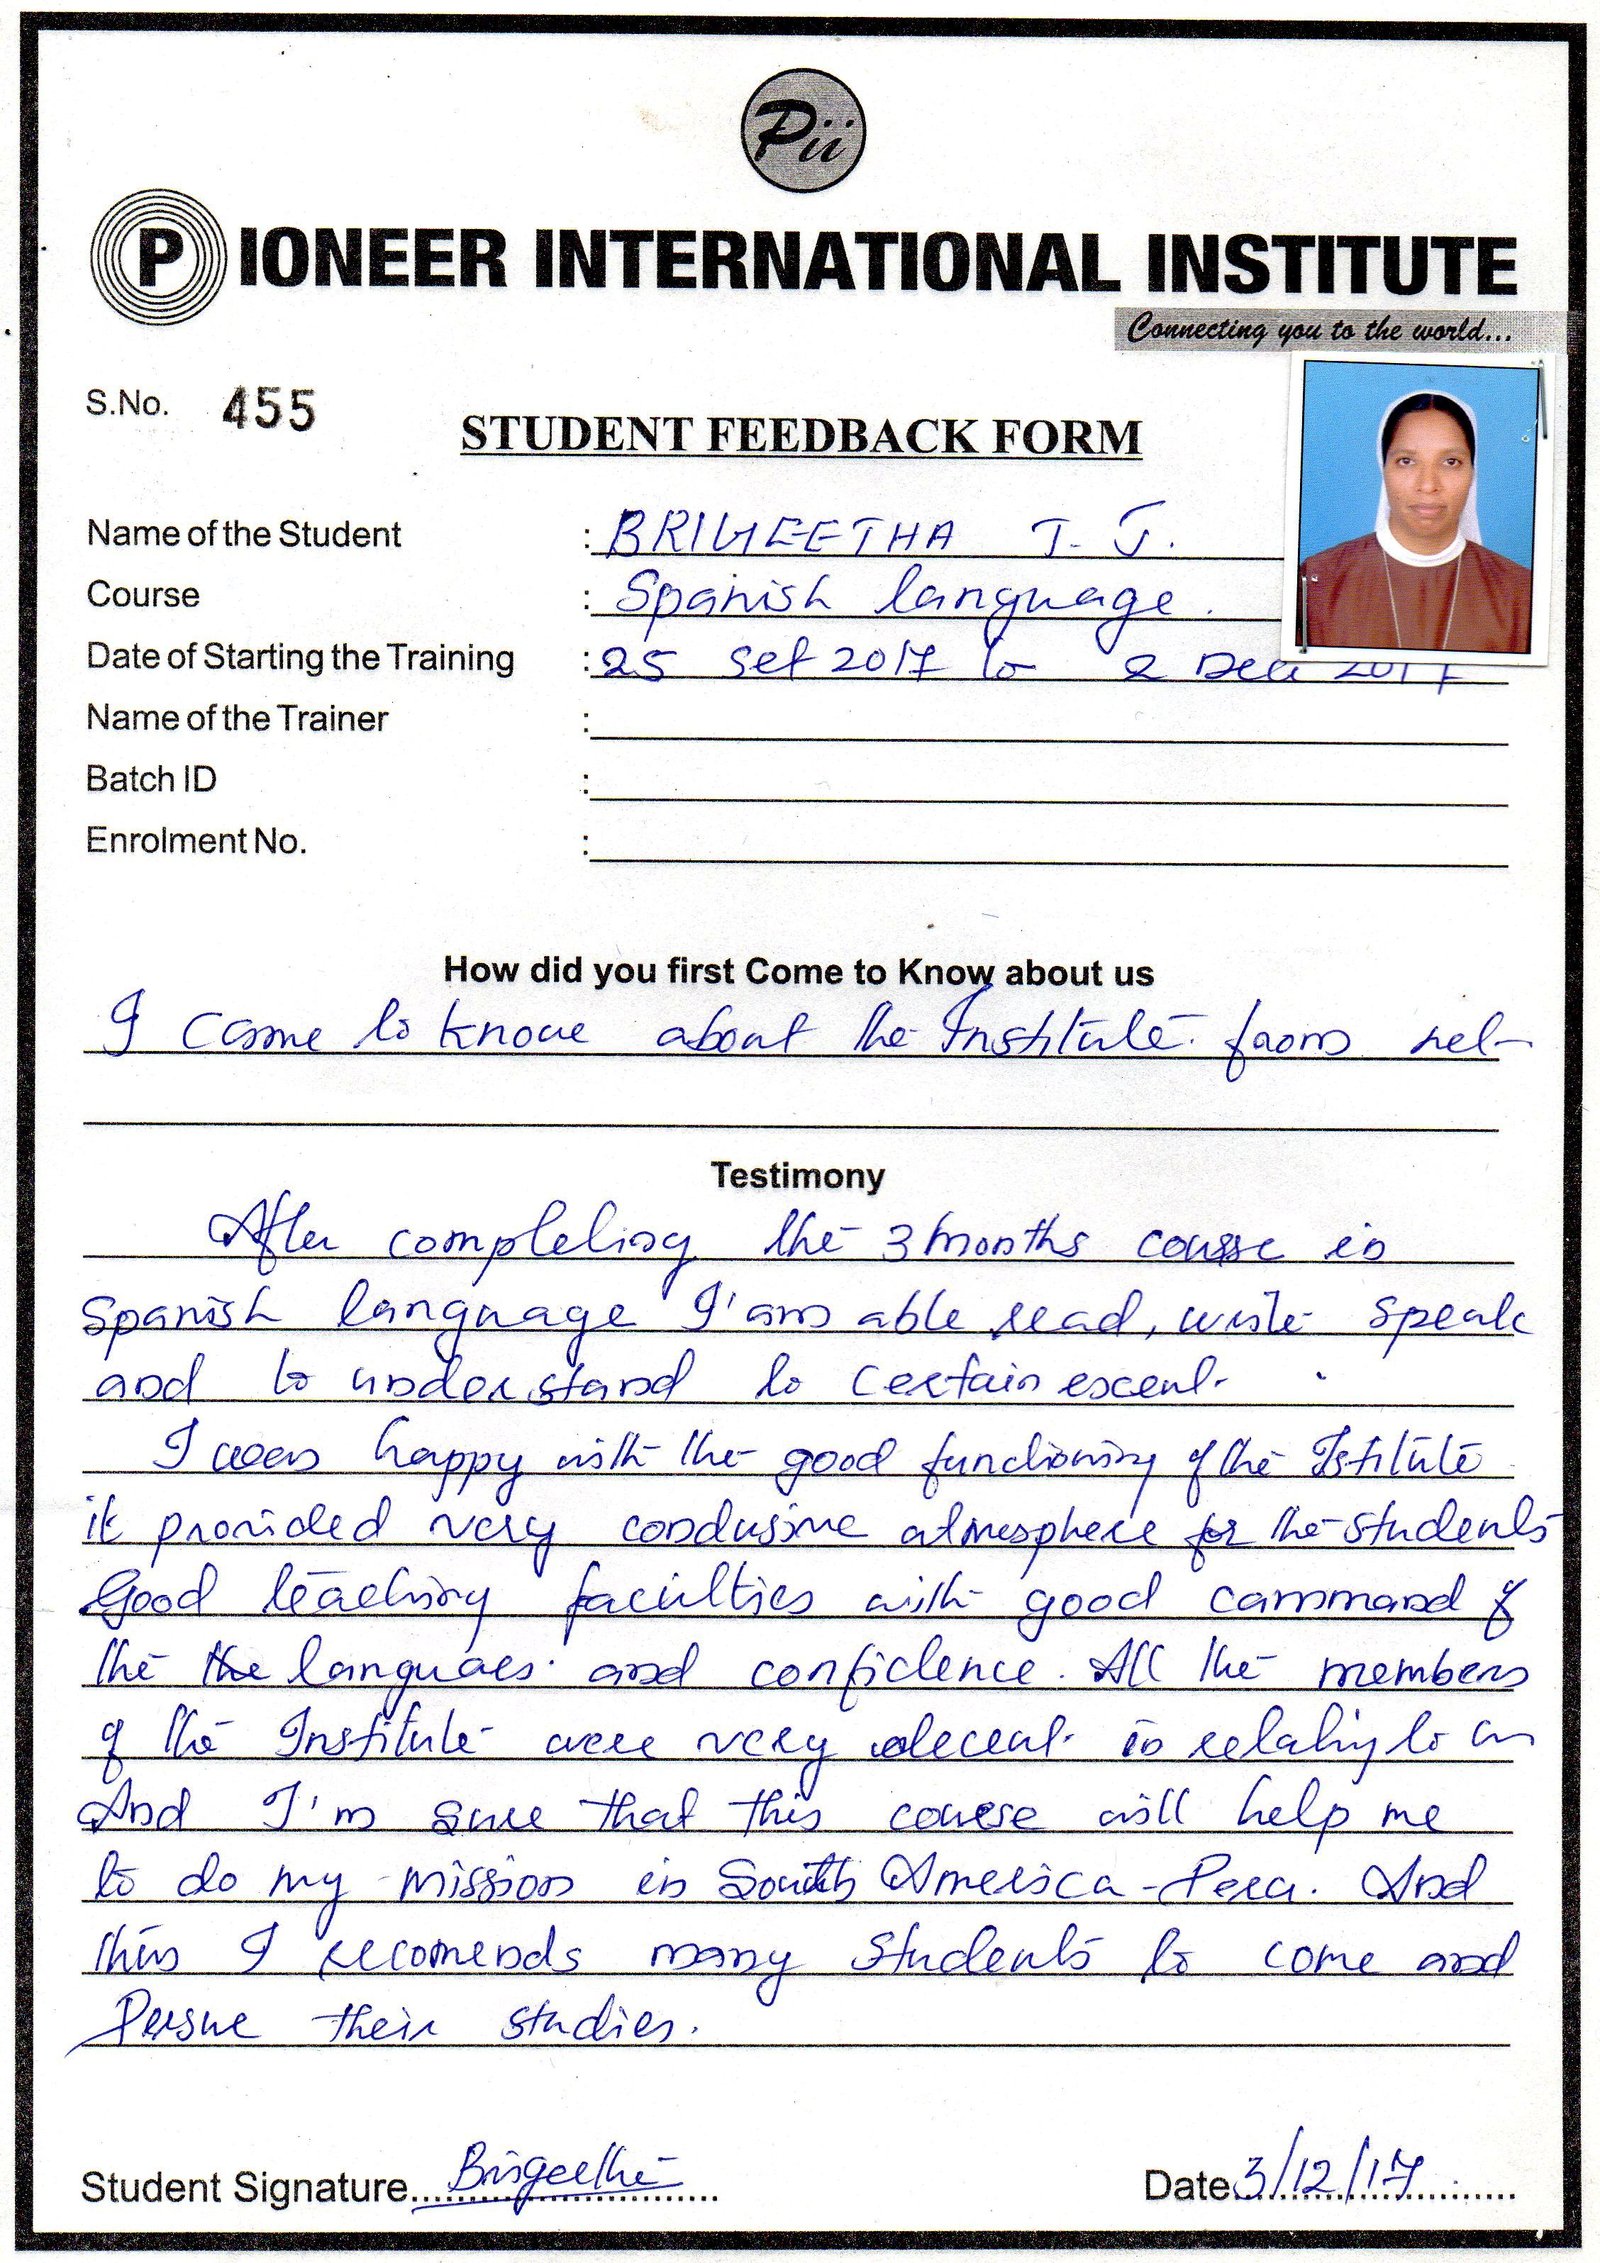 Pii
PIONEER INTERNATIONAL INSTITUTE
Connecting you to the world...
S.No. 455
STUDENT FEEDBACK FORM
Name of the Student : BRIGEETHA T. J.
Course : Spanish language.
Date of Starting the Training : 25 Set 2017 to 2 Dec 2017
Name of the Trainer :
Batch ID :
Enrolment No. :
How did you first Come to Know about us
I came to know about the Institute from net
Testimony
After completing the 3 months course in
Spanish language I'am able read, write speak
and to understand to certain excent.
I was happy with the good functioning of the Istitute
it provided very condusive atmosphere for the students
Good teaching faculties with good command of
the the languaes and confidence. All the members
of the Institute were very decent in relating to
And I'm sure that this course will help me
to do my mission in South America - Peru. And
this I recomends many students to come and
Persue their studies.
Student Signature Brigeetha
Date 3/12/17